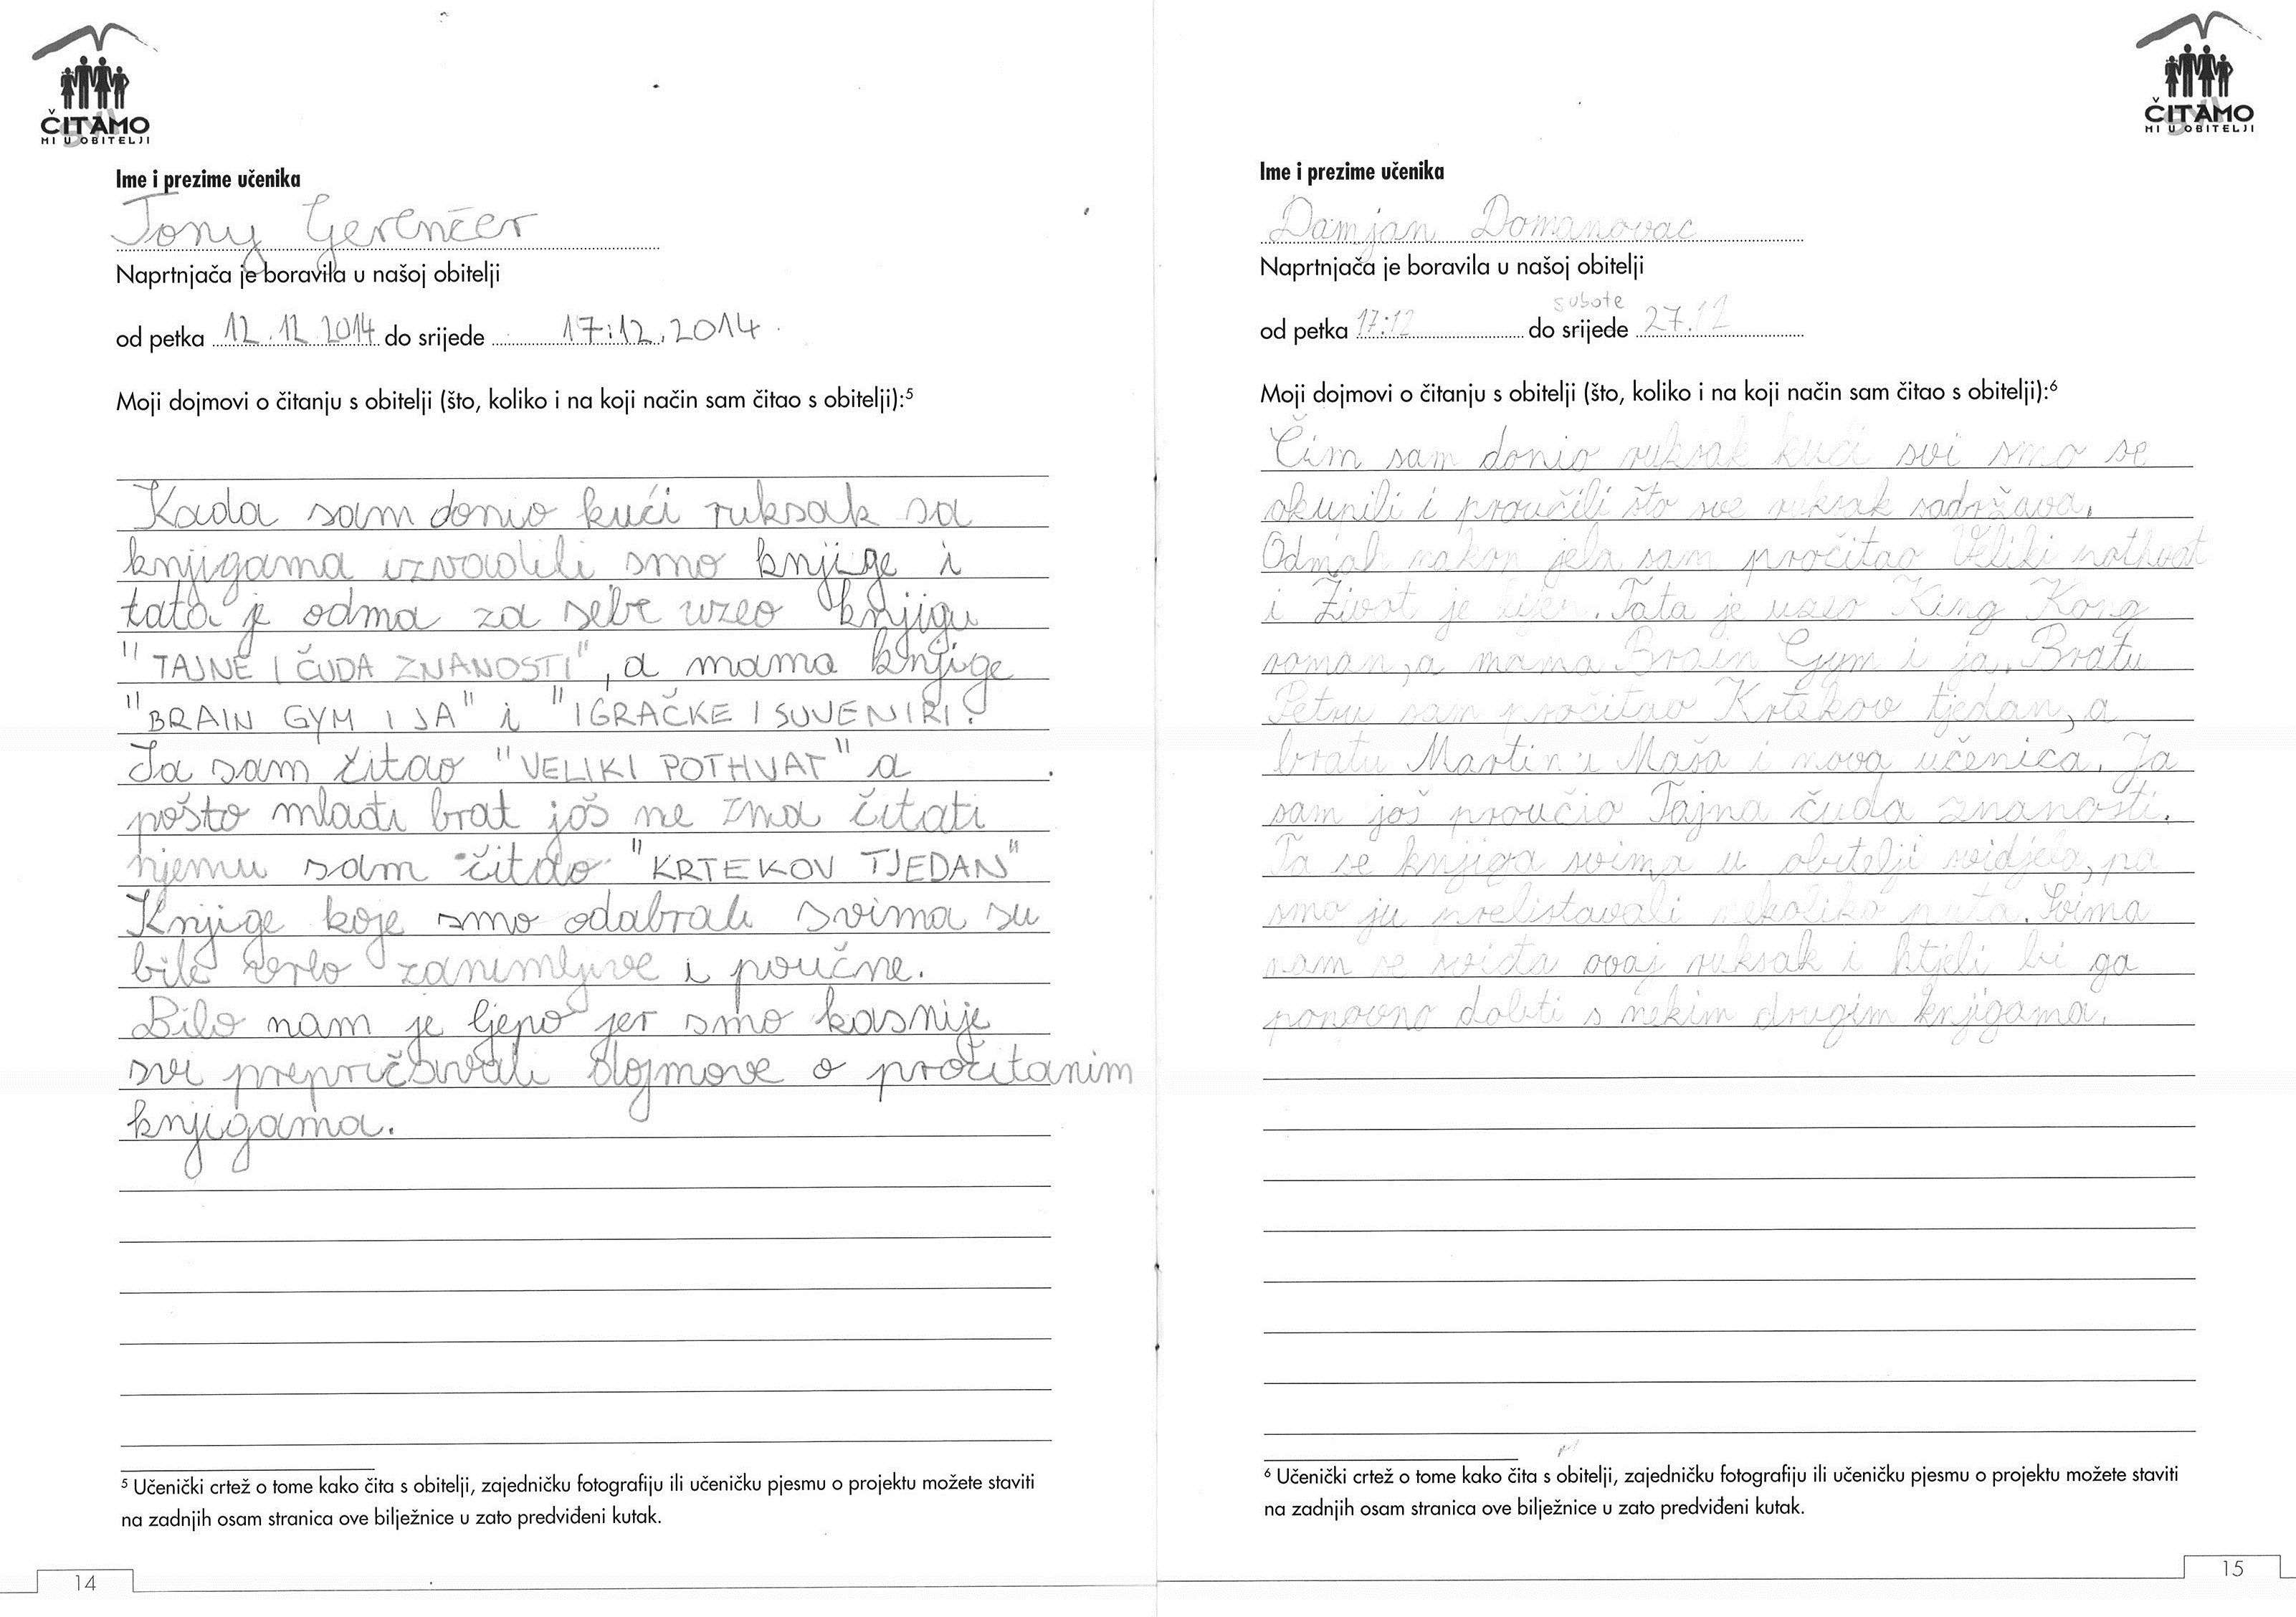 ČITAMO
MI U OBITELJI
Ime i prezime učenika
Tony Gerenčer
Naprtnjača je boravila u našoj obitelji
od petka 12.12.2014 do srijede 17.12.2014.
Moji dojmovi o čitanju s obitelji (što, koliko i na koji način sam čitao s obitelji):⁵
Kada sam donio kući ruksak sa
knjigama izvadili smo knjige i
tata je odma za sebe uzeo knjigu
"TAJNE I ČUDA ZNANOSTI", a mama knjige
"BRAIN GYM I JA" i "IGRAČKE I SUVENIRI".
Ja sam čitao "VELIKI POTHVAT" a
pošto mlađi brat još ne zna čitati
njemu sam čitao "KRTEKOV TJEDAN"
Knjige koje smo odabrali svima su
bile vrlo zanimljive i poučne.
Bilo nam je ljepo jer smo kasnije
svi prepričavali dojmove o pročitanim
knjigama.
⁵ Učenički crtež o tome kako čita s obitelji, zajedničku fotografiju ili učeničku pjesmu o projektu možete staviti
na zadnjih osam stranica ove bilježnice u zato predviđeni kutak.
14
ČITAMO
MI U OBITELJI
Ime i prezime učenika
Damjan Domanovac
Naprtnjača je boravila u našoj obitelji
subote
od petka 17.12 do srijede 27.12
Moji dojmovi o čitanju s obitelji (što, koliko i na koji način sam čitao s obitelji):⁶
Čim sam donio ruksak kući svi smo se
okupili i proučili što sve ruksak sadržava.
Odmah nakon jela sam pročitao Veliki pothvat
i Život je lijep. Tata je uzeo King Kong
roman, a mama Brain Gym i ja. Bratu
Petru sam pročitao Krtekov tjedan, a
bratu Martinu Maša i nova učenica. Ja
sam još proučio Tajna čuda znanosti.
Ta se knjiga svima u obitelji svidjela, pa
smo ju prelistavali nekoliko puta. Svima
nam se sviđa ovaj ruksak i htjeli bi ga
ponovno dobiti s nekim drugim knjigama.
⁶ Učenički crtež o tome kako čita s obitelji, zajedničku fotografiju ili učeničku pjesmu o projektu možete staviti
na zadnjih osam stranica ove bilježnice u zato predviđeni kutak.
15